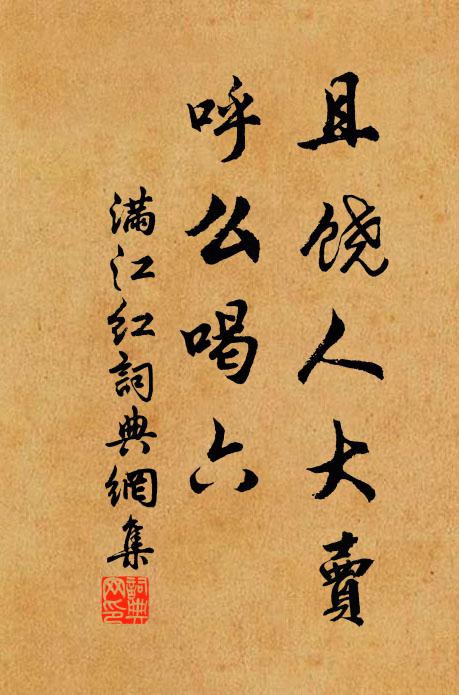 且饶人大賣
呼么喝六
满江红詞典網集
詞典
网印